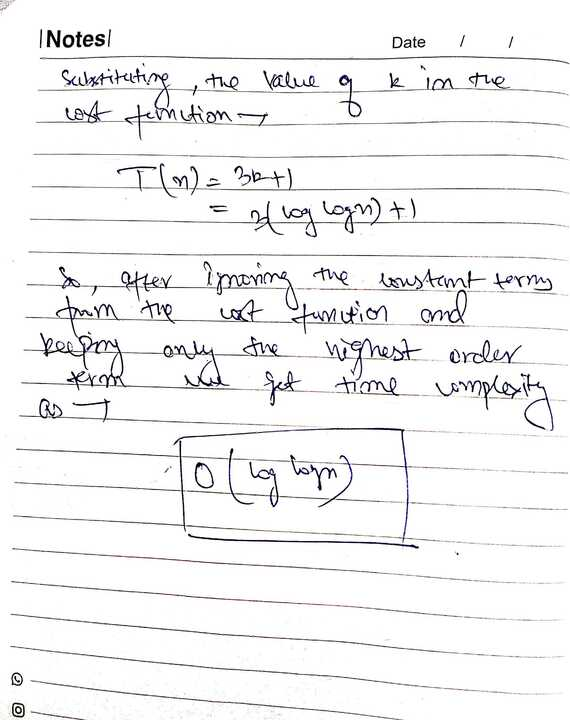 |Notes|
Date / /
Substituting, the value of k in the
cost function →
T(n) = 3k+1
= 3(log logn) + 1
So, after Ignoring the constant terms
from the cost function and
keeping only the highest order
term we get time complexity
as →
O(log logn)